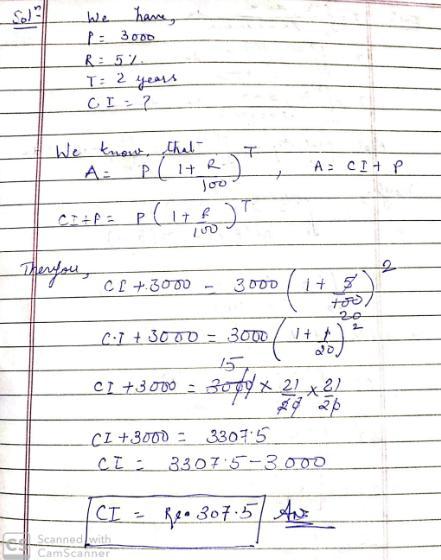 Solⁿ We have,
P = 3000
R = 5%
T = 2 years
C.I = ?
We know, that-
A = P(1+R/100)^T , A = CI + P
CI+P = P(1+R/100)^T
Therefore,
CI + 3000 = 3000(1+5/100)^2
20
C.I + 3000 = 3000(1+1/20)^2
15
CI + 3000 = 3000 × 21/20 × 21/20
CI + 3000 = 3307.5
CI = 3307.5 - 3000
CI = Rs. 307.5 Ans
CS Scanned with
CamScanner